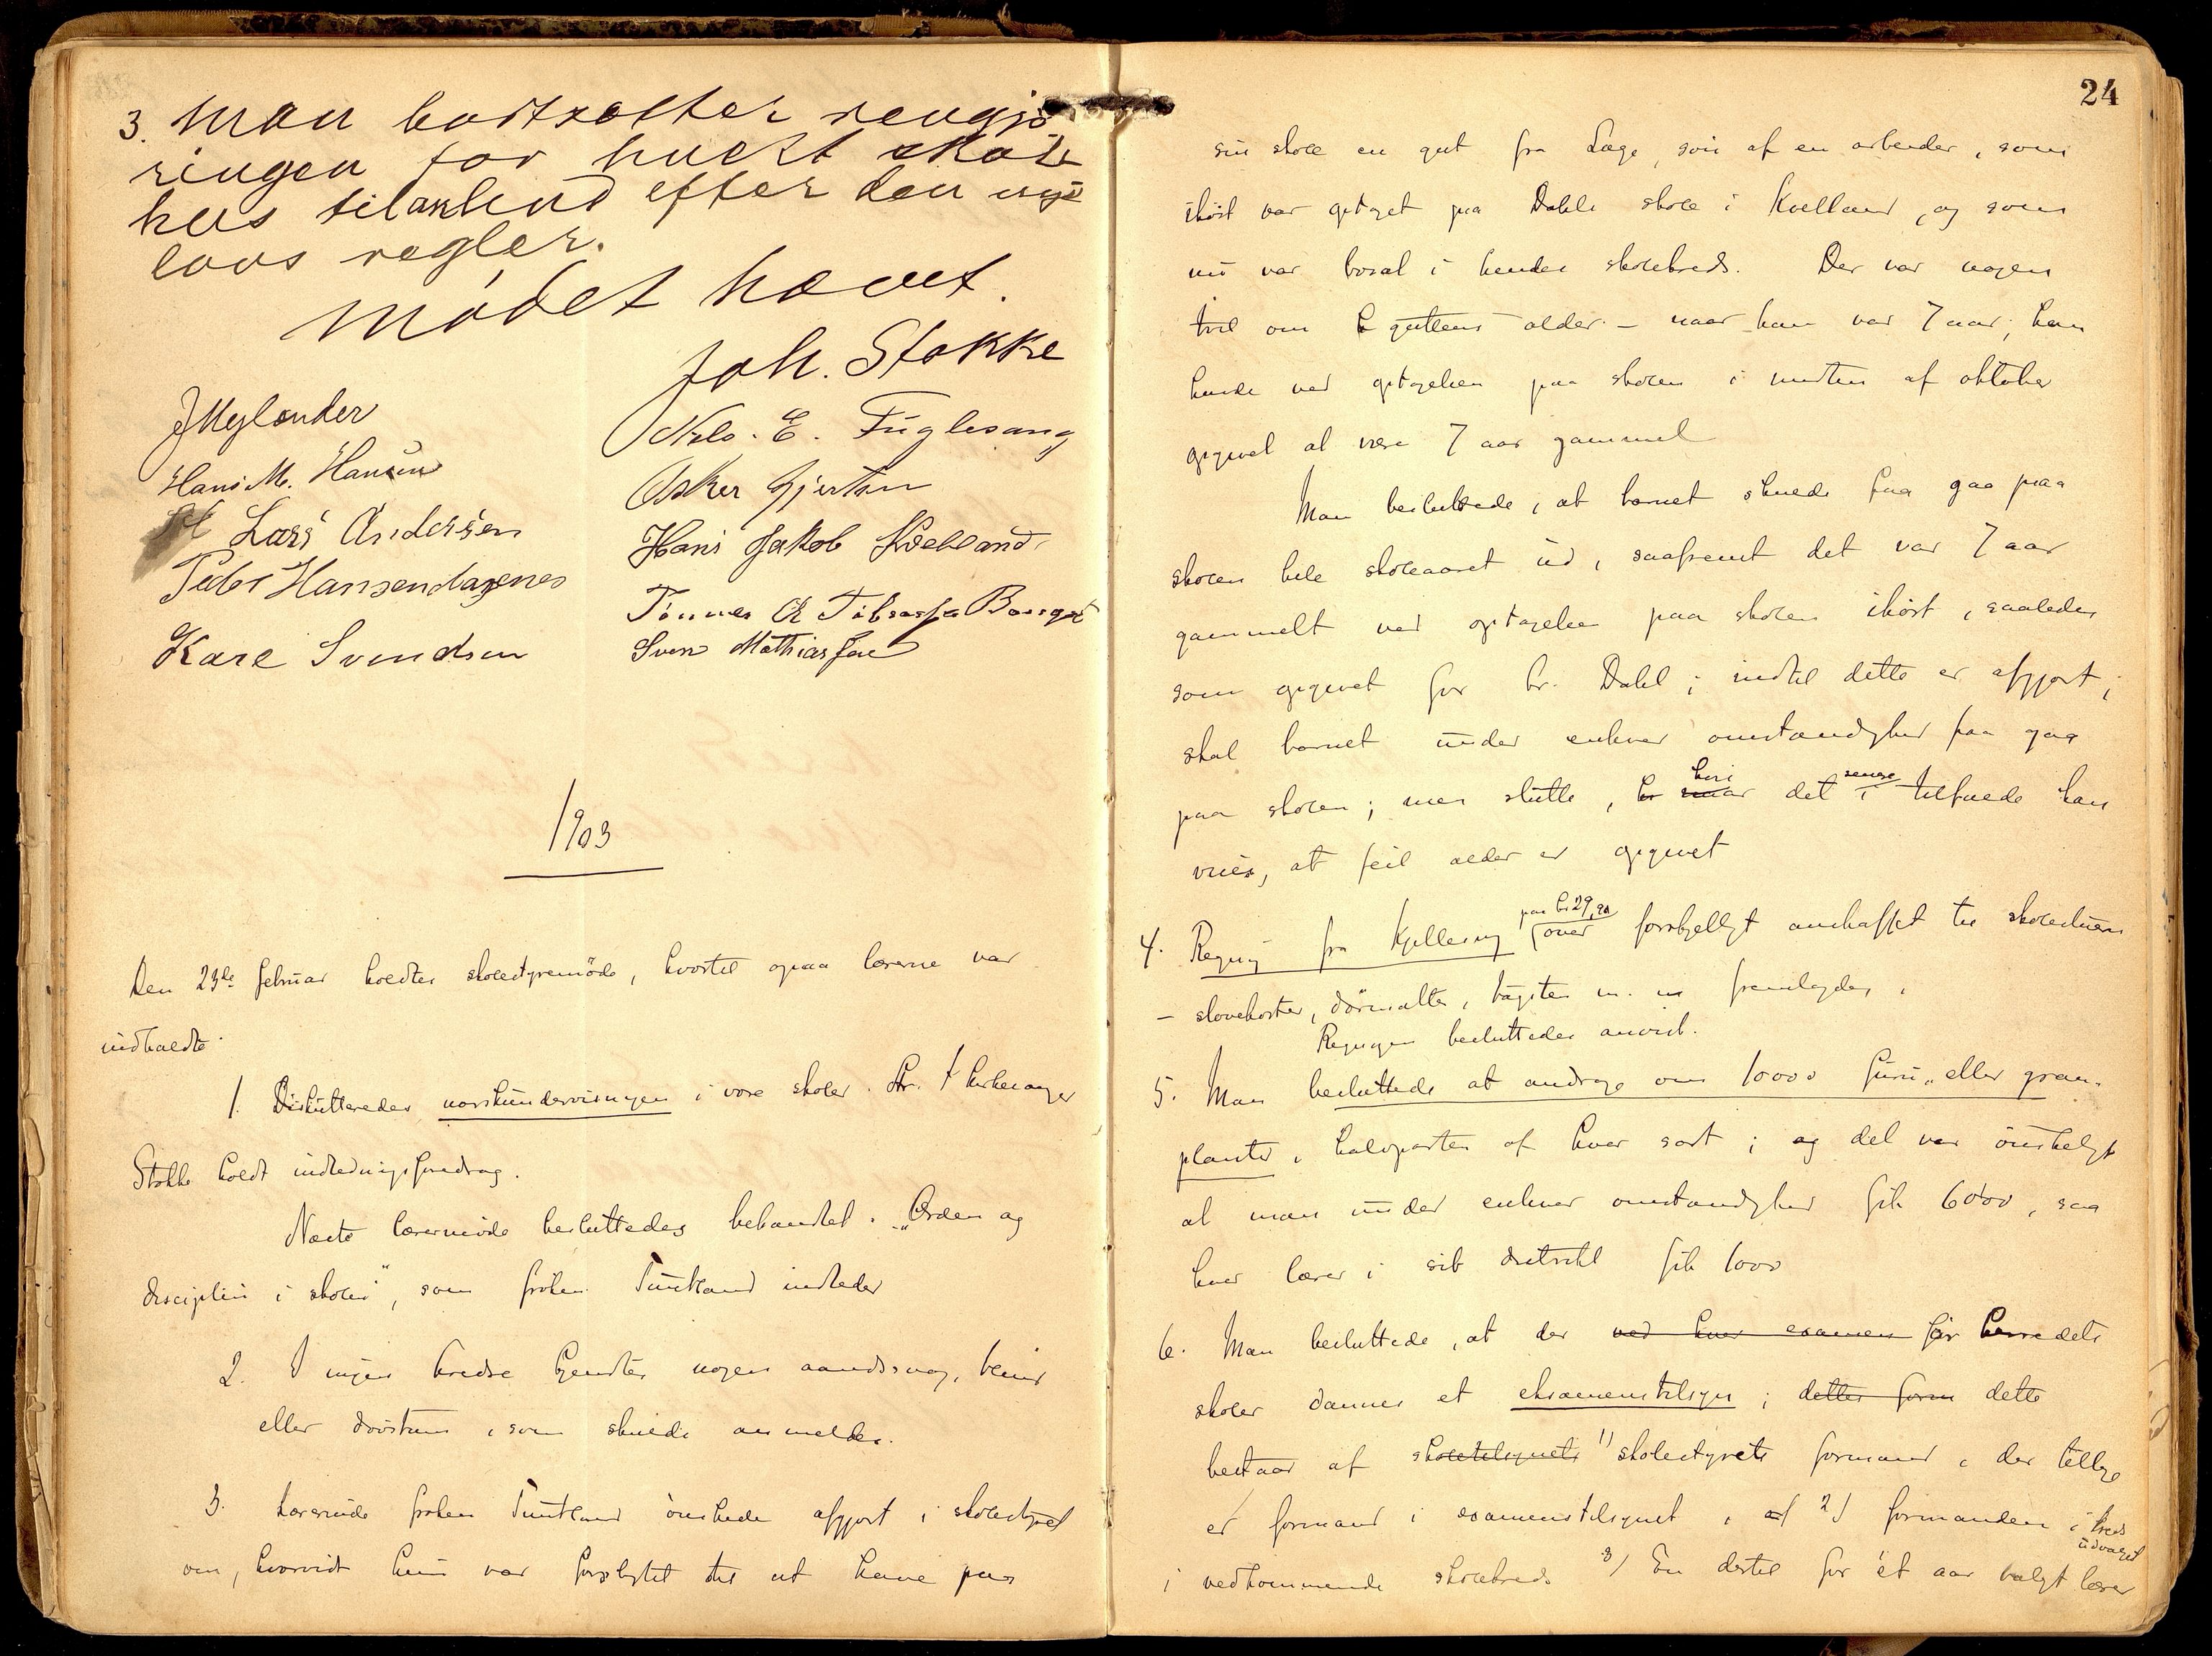 3. Man bortsætter rengjø
ringen for hvert skole
hus tilanbud efter den nye
lovs regler.
Mødet hævet.
Joh. Stokke
J Mylander
Nils. E. Fuglesang
Hans M. Hansen
Osker Gjertsen
Lars Andersen
Hans Jakob Kvelland
Peder Hansen
Tønnes
Karl Svendsen
Sven Mathiassen
1903
Den 23de februar holdtes skolestyremöde, hvortil ogsaa lærerne var
indkaldte.
1. Diskutteredes norskundervisningen i vore skoler. Hr. kirkesanger
Stokke holdt indledningsforedrag.
Næste lærermöde besluttedes behandlet: „Orden og
disciplin i skolen", som fröken Tuntland indleder
2. I ingen kredse kjendtes nogen aandssvag, blind
eller dövstum, som skulde anmeldes.
3. Lærerinde fröken Tuntland önskede afgjort i skolestyret
om, hvorvidt hun var forpligtet til at have paa
24
sin skole en gut fra Lege, sön af en arbeider, som
ihöst var optaget paa Dahls skole i Kvelland, og som
nu var bosat i hendes skolekreds. Der var nogen
tvil om guttens alder – naar han var 7 aar; han
havde ved optagelsen paa skolen i midten af oktober
opgivet at være 7 aar gammel
Man besluttede, at barnet skulde faa gaa paa
skolen hele skoleaaret ud, saafremt det var 7 aar
gammelt ved optagelsen paa skolen ihöst, saaledes
som opgivet for hr. Dahl; indtil dette er afgjort,
skal barnet under enhver omstændighed faa gaa
paa skolen; men slutte, hvis det senere i tilfælde kan
vises, at feil alder er opgivet
4. Regning fra Kjellesvig paa kr 29,90 over forskjelligt anskaffet til skolehusene
– stovekoster, dörmatter, bögster m. m fremlagdes.
Regningen besluttedes anvist.
5. Man besluttede at andrage om 10000 furu- eller gran-
planter, halvparten af hver sort; og det var önskeligt
at man under enhver omstændighed fik 6000, saa
hver lærer i sit distrikt fik 1000
6. Man besluttede, at der ved hver examen for herredets
skoler dannes et eksamenstilsyn; dette form dette
bestaar af skoletilsynets 1) skolestyrets formand, der tillige
er formand i examenstilsynet, af 2) formanden i kreds
udvalget
i vedkommende skolekreds 3) En dertil for ét aar valgt lærer